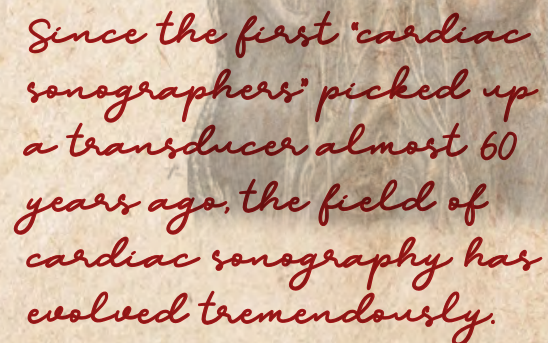 Since the first "cardiac
sonographers" picked up
a transducer almost 60
years ago, the field of
cardiac sonography has
evolved tremendously.